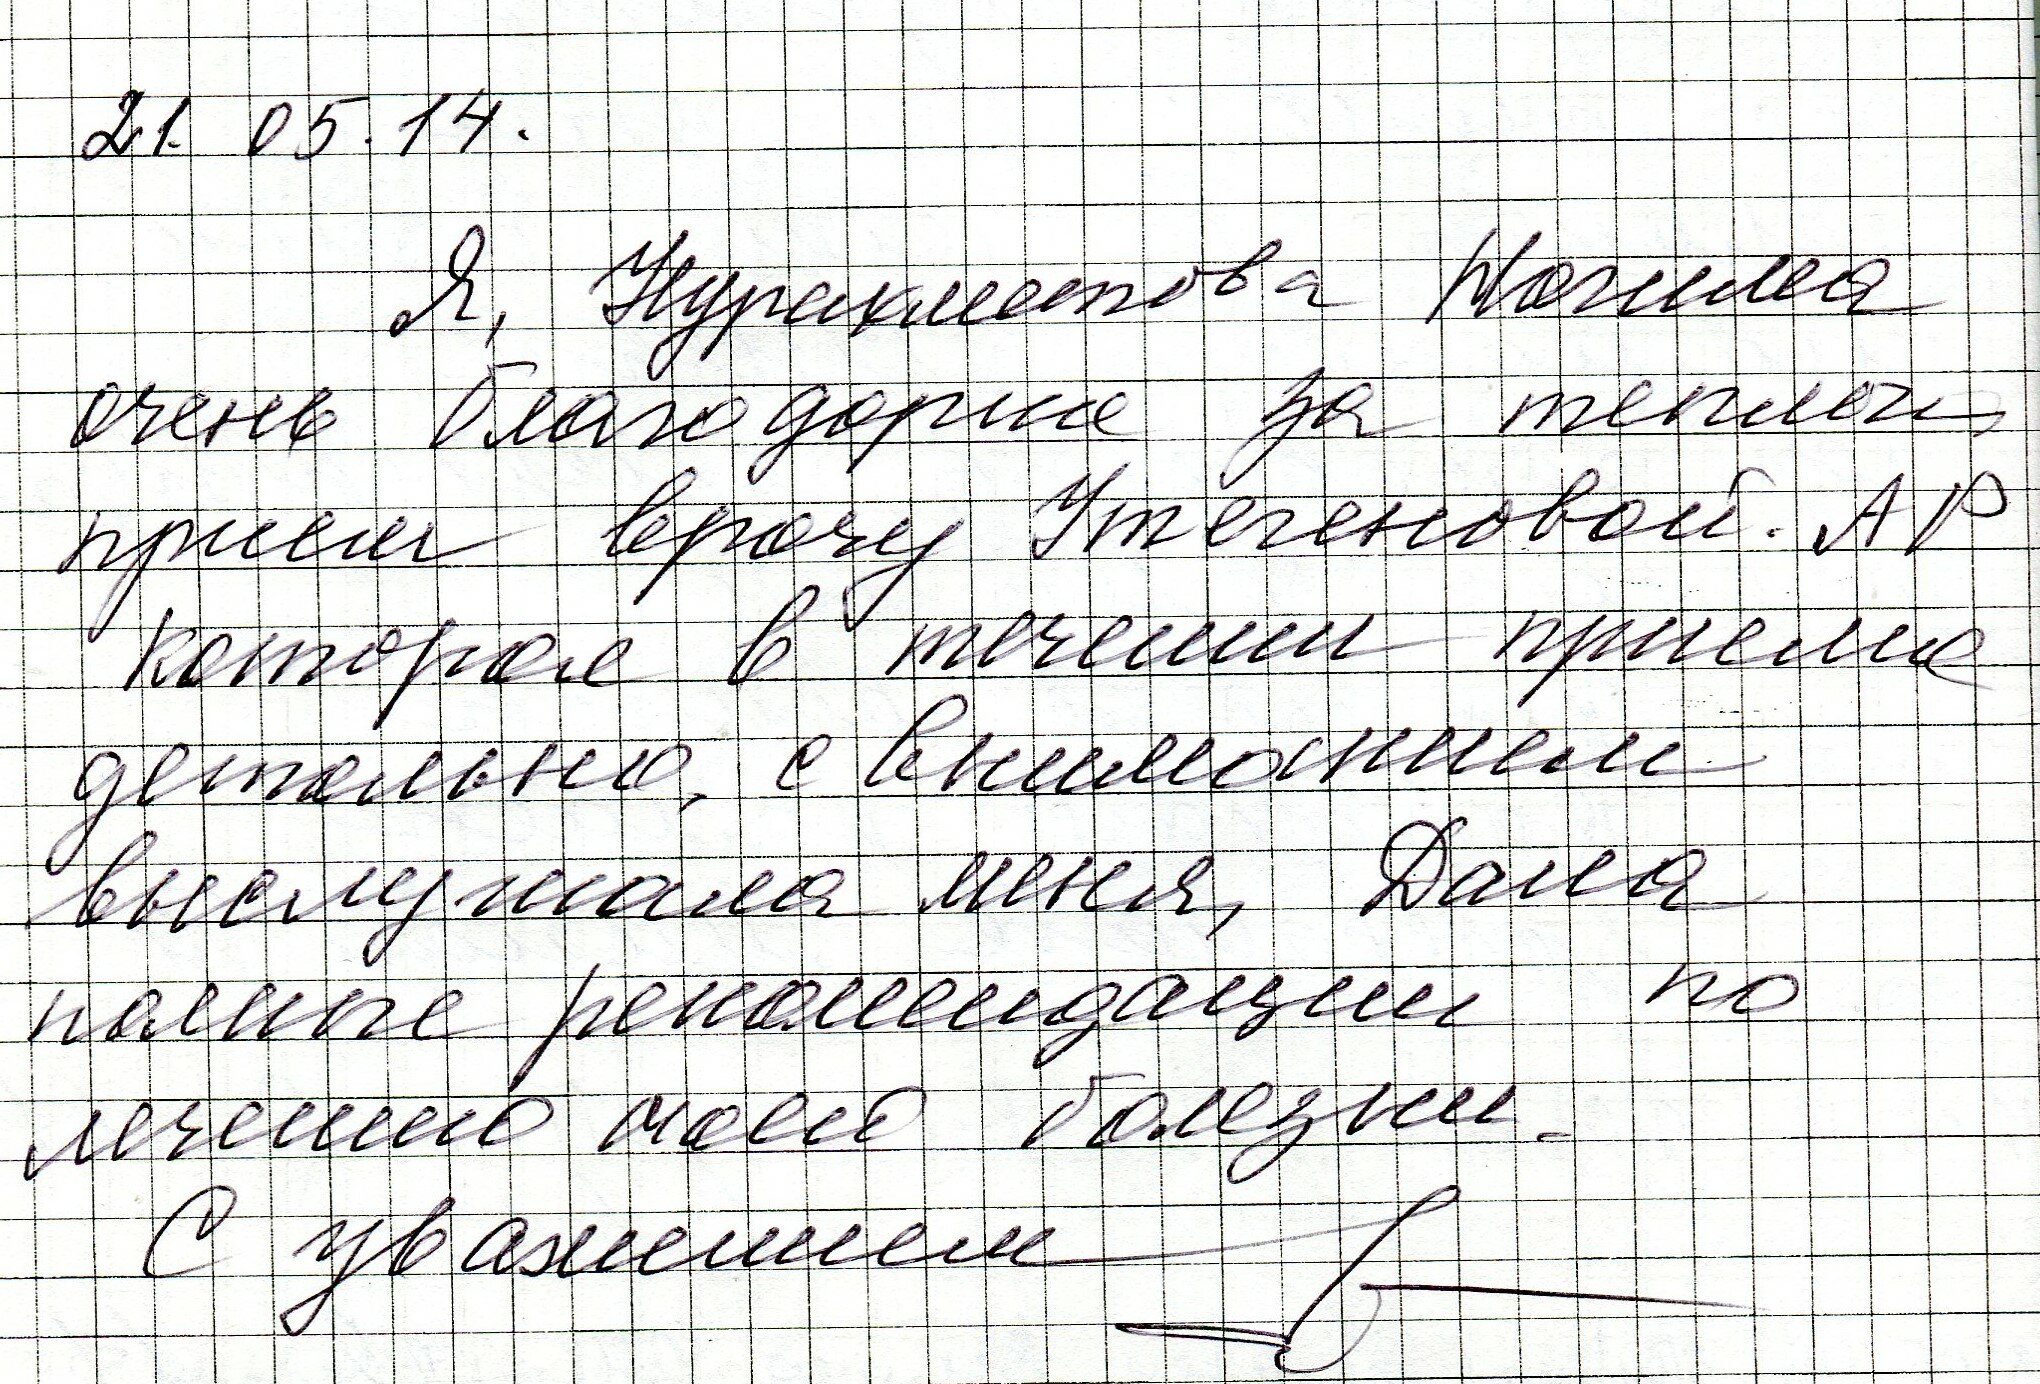 21. 05.14.
Я, Нурахметова Нагима
очень благодарна за теплый
прием врачу Утегеновой. А Р
которая в течении приема
детально, с вниманием
выслушала меня, Дала
полные рекомендации по
лечению моей болезни.
С уважением